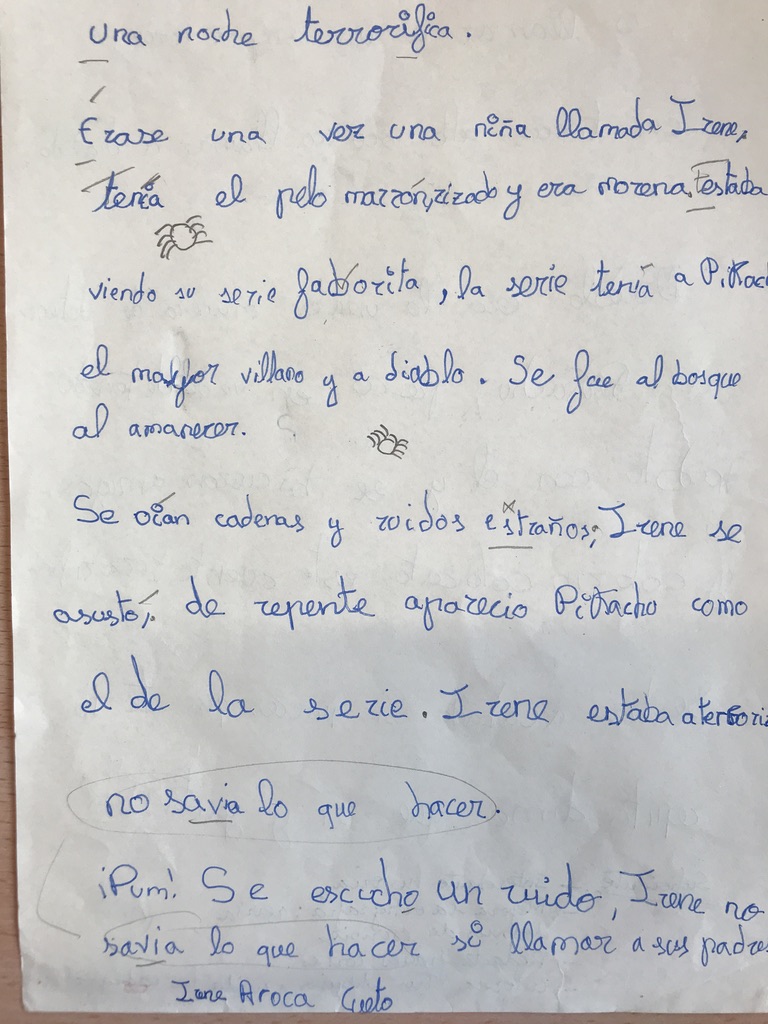 una noche terrorifica.
Erase una vez una niña llamada Irene,
tenía el pelo marrón, rizado y era morena. estaba
viendo su serie faborita, la serie tenia a Pikach
el mallor villano y a diablo. Se fue al bosque
al amanecer.
Se oían cadenas y ruidos estraños, Irene se
asustó, de repente aparecio Pikacho como
el de la serie. Irene estaba aterroriz
no savia lo que hacer.
¡Pum! Se escucho un ruido, Irene no
savia lo que hacer si llamar a sus padre
Irene Aroca Cueto